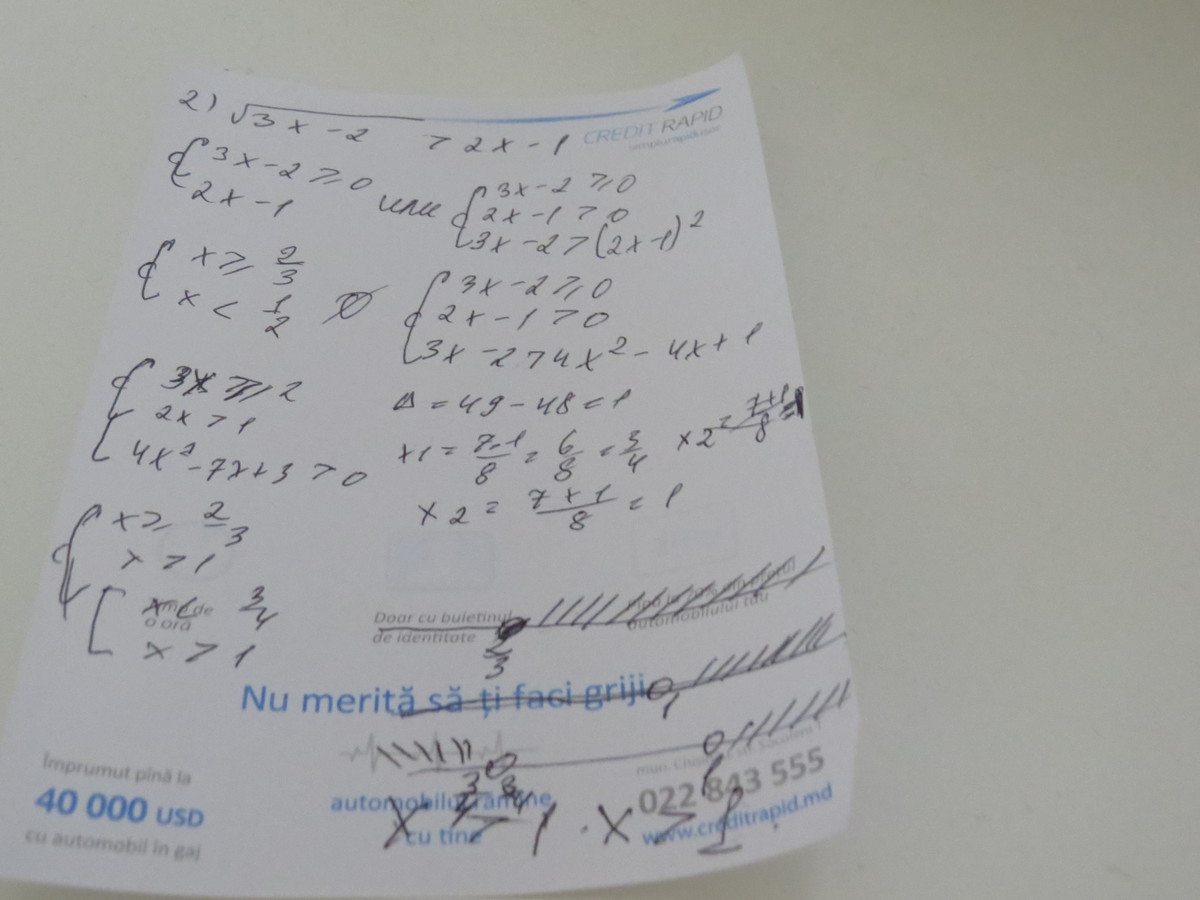 2) √3x-2 > 2x-1
CREDIT RAPID
{ 3x-2 ≥ 0
2x-1
или
{ 3x-2 ≥ 0
2x-1 > 0
3x-2 > (2x-1)²
{ x ≥ 2/3
x < 1/2 ∅
{ 3x-2 ≥ 0
2x-1 > 0
3x-2 > 4x²-4x+1
{ 3x ≥ 2
2x > 1
4x²-7x+3 > 0
Δ = 49-48 = 1
x1 = 7-1/8 = 6/8 = 3/4
x2 = 7+1/8 = 1
x2 = 7+1/8 = 1
{ x ≥ 2/3
x > 1
[ x < 3/4
x > 1
o oră
Doar cu buletinul
de identitate
automobilului tău
2/3
Nu merită să ți faci griji
1
3/4
1
Împrumut pînă la
40 000 USD
cu automobil în gaj
automobilul rămîne
cu tine
022 843 555
www.creditrapid.md
x > 1